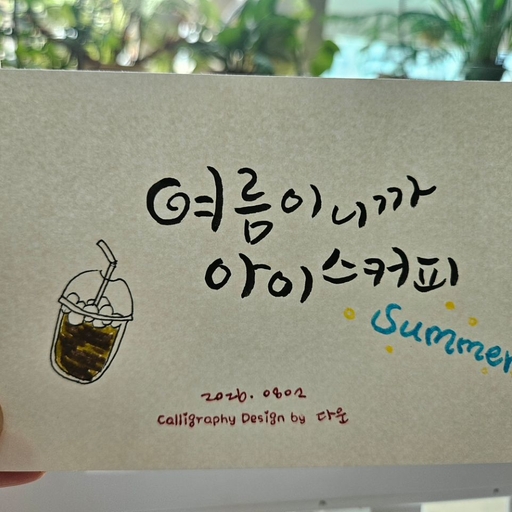 여름이니까
아이스커피
Summer
2026. 0802
Calligraphy Design by 다운